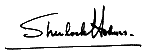 Sherlock Holmes.